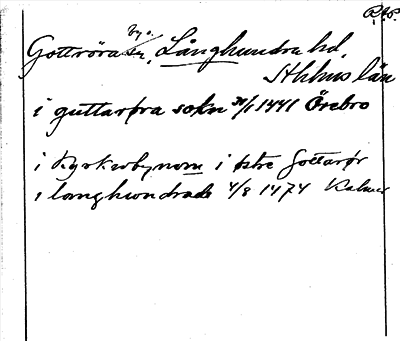 R.A.P.
Gottröra sn, Långhundra hd,
Sthlms län
i guttarøra sokn 30/1 1441 Örebro
i kyrkerbynom i østre Gottarør
i langhwndrade 4/8 1474 Kalmar